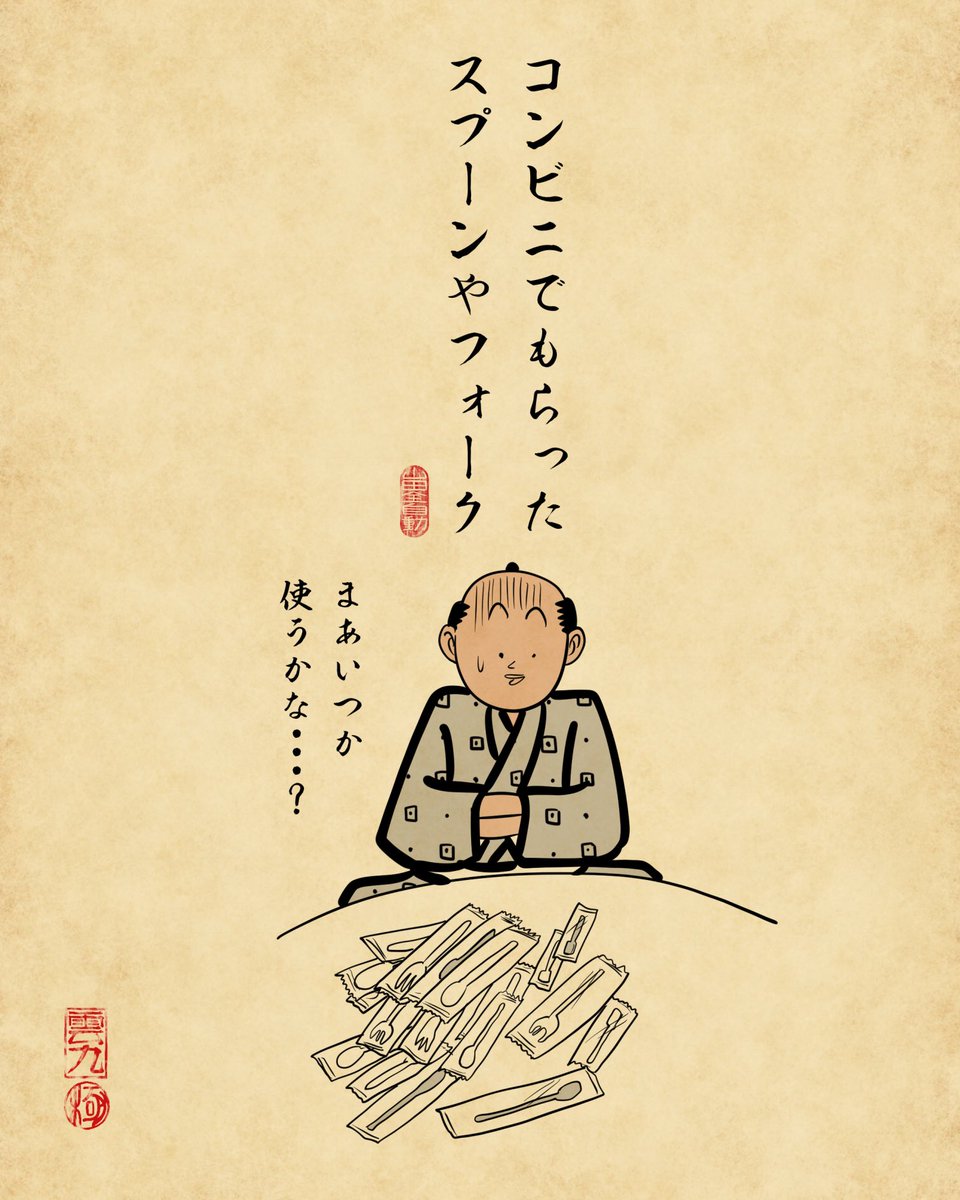 コンビニでもらった
スプーンやフォーク
まあいつか
使うかな・・・・?